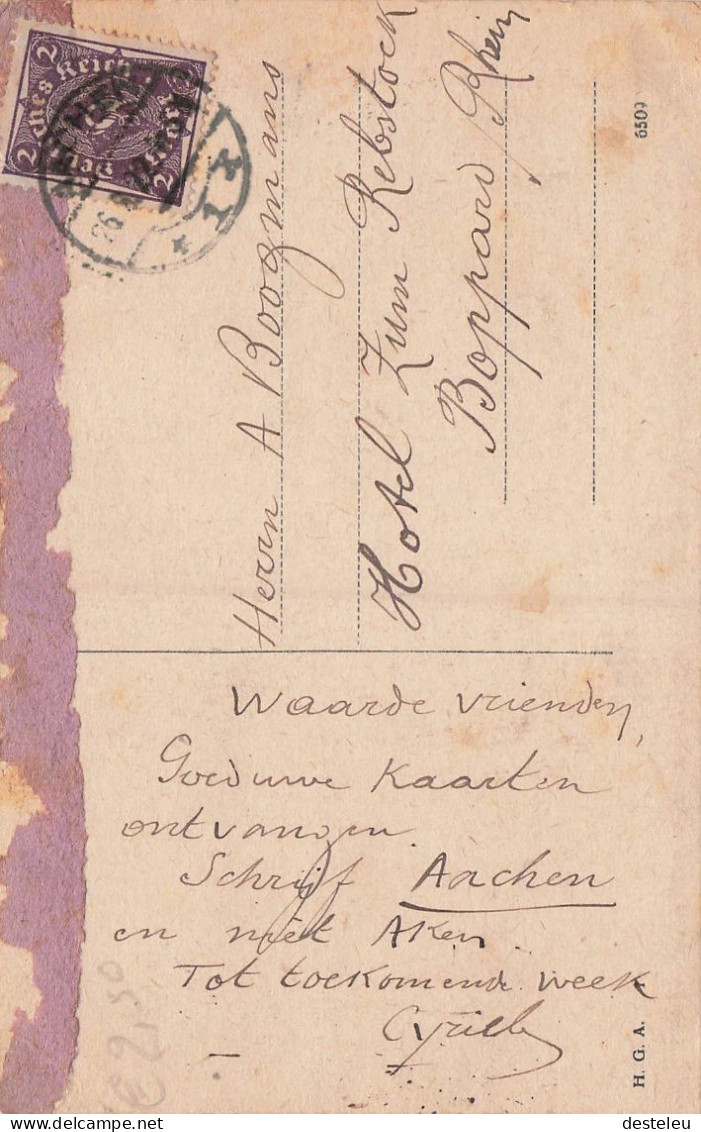 2 2
Deutsches Reich
2 2
AACHEN
26
* 1 *
Herrn A Boogmans
Hotel Zum Rebstock
Boppard / Rhein
6509
Waarde vrienden,
Goed uwe Kaarten
ontvangen.
Schrijf Aachen
en niet Aken
Tot toekomende week
Cyriel
€ 2,50
H. G. A.
desteleu